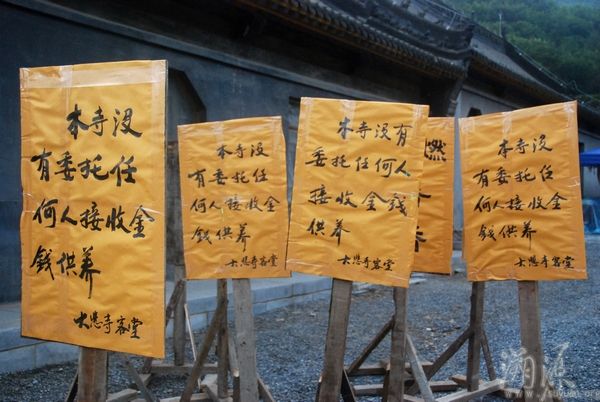 本寺没
有委托任
何人接收金
钱供养
大悲寺客堂
本寺没
有委托任
何人接收金
钱供养
大悲寺客堂
本寺没有
委托任何人
接收金钱
供养
大悲寺客堂
燃
本寺没
有委托任
何人接收金
钱供养
大悲寺客堂
溯源